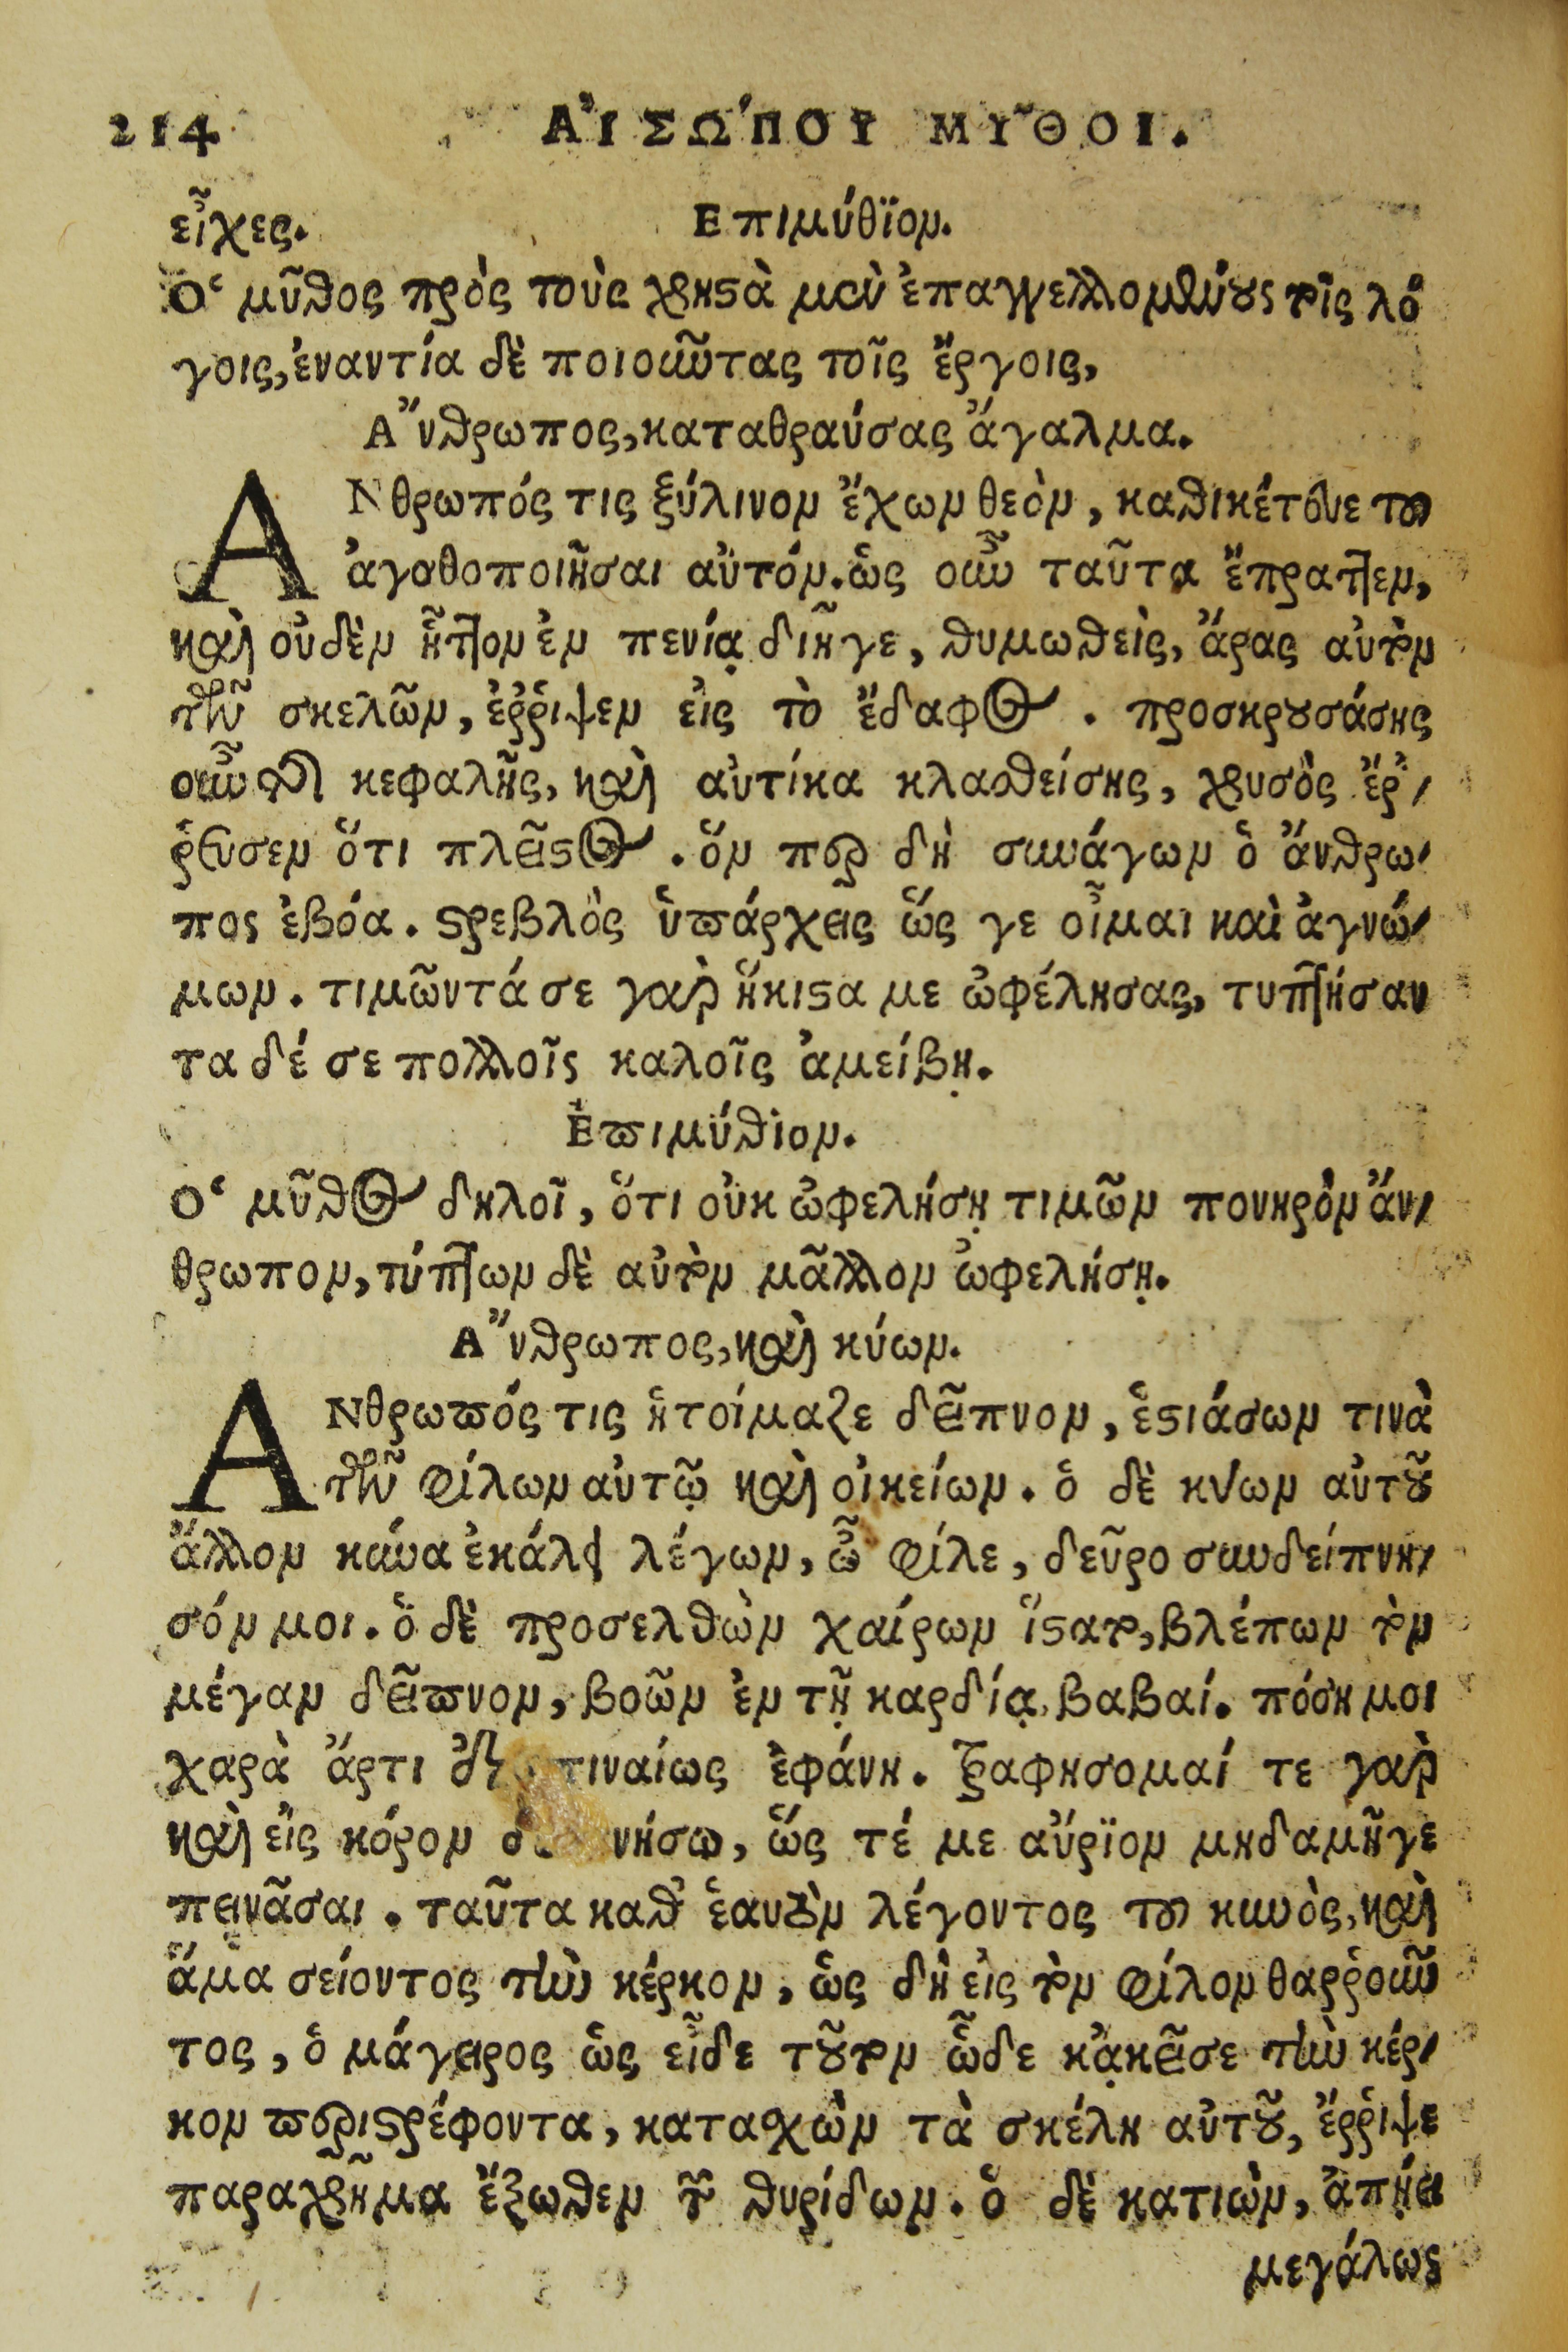 214 ΑἸΣΩΠΟΥ ΜΥ͂ΘΟΙ.
εἶχες. Επιμύθϊον.
Ὁ μῦθος πρὸς τοὺς χρηστὰ μὲν ἐπαγγελλομένους τοῖς λό
γοις, ἐναντία δὲ ποιοῦντας τοῖς ἔργοις,
Ἄνθρωπος, καταθραύσας ἄγαλμα.
ΑΝθρωπός τις ξύλινον ἔχων θεὸν, καθικέτευε τοῦ
ἀγαθοποιῆσαι αὐτόν. ὡς οὖν ταῦτα ἔπραττεν,
καὶ οὐδὲν ἧττον ἐν πενίᾳ διῆγε, θυμωθεὶς, ἄρας αὐτὸν
τῶν σκελῶν, ἐῤῥιψεν εἰς τὸ ἔδαφος. προσκρουσάσης
οὖν τῆς κεφαλῆς, καὶ αὐτίκα κλασθείσης, χρυσὸς ἔῤ-
ῥευσεν ὅτι πλεῖστος. ὅν περ δὴ συνάγων ὁ ἄνθρω-
πος ἐβόα. στρεβλὸς ὑπάρχεις ὥς γε οἶμαι καὶ ἀγνώ-
μων. τιμῶντά σε γὰρ ἥκιστα με ὠφέλησας, τυπτήσαν
τα δέ σε πολλοῖς καλοῖς ἀμείβῃ.
Ἐπιμύθιον.
Ὁ μῦθος δηλοῖ, ὅτι οὐκ ὠφελήσῃ τιμῶν πονηρὸν ἄν-
θρωπον, τύπτων δὲ αὐτὸν μᾶλλον ὠφελήσῃ.
Ἄνθρωπος, καὶ κύων.
ΑΝθρωπός τις ἡτοίμαζε δεῖπνον, ἑστιάσων τινὰ
τῶν φίλων αὐτῷ καὶ οἰκείων. ὁ δὲ κύων αὐτοῦ
ἄλλον κύνα ἐκάλει λέγων, ὦ φίλε, δεῦρο συνδείπνη-
σόν μοι. ὁ δὲ προσελθὼν χαίρων ἵστατο, βλέπων τὸν
μέγαν δεῖπνον, βοῶν ἐν τῇ καρδίᾳ, βαβαί. πόση μοι
χαρὰ ἄρτι τιναίως ἐφάνη. τραφησομαί τε γὰρ
καὶ εἰς κόρον νήσω, ὥς τέ με αὔρϊον μηδαμῆγε
πεινᾶσαι. ταῦτα καθ' ἑαυτὸν λέγοντος τοῦ κυνὸς, καὶ
ἅμα σείοντος τὴν κέρκον, ὡς δὴ εἰς τὸν φίλον θαῤῥοῦν
τος, ὁ μάγειρος ὡς εἶδε τοῦτον ὧδε κᾀκεῖσε τὴν κέρ-
κον περιστρέφοντα, κατασχὼν τὰ σκέλη αὐτοῦ, ἔῤῥιψε
παραχρῆμα ἔξωθεν τῶν θυρίδων. ὁ δὲ κατιὼν, ἀπῄει
μεγάλως